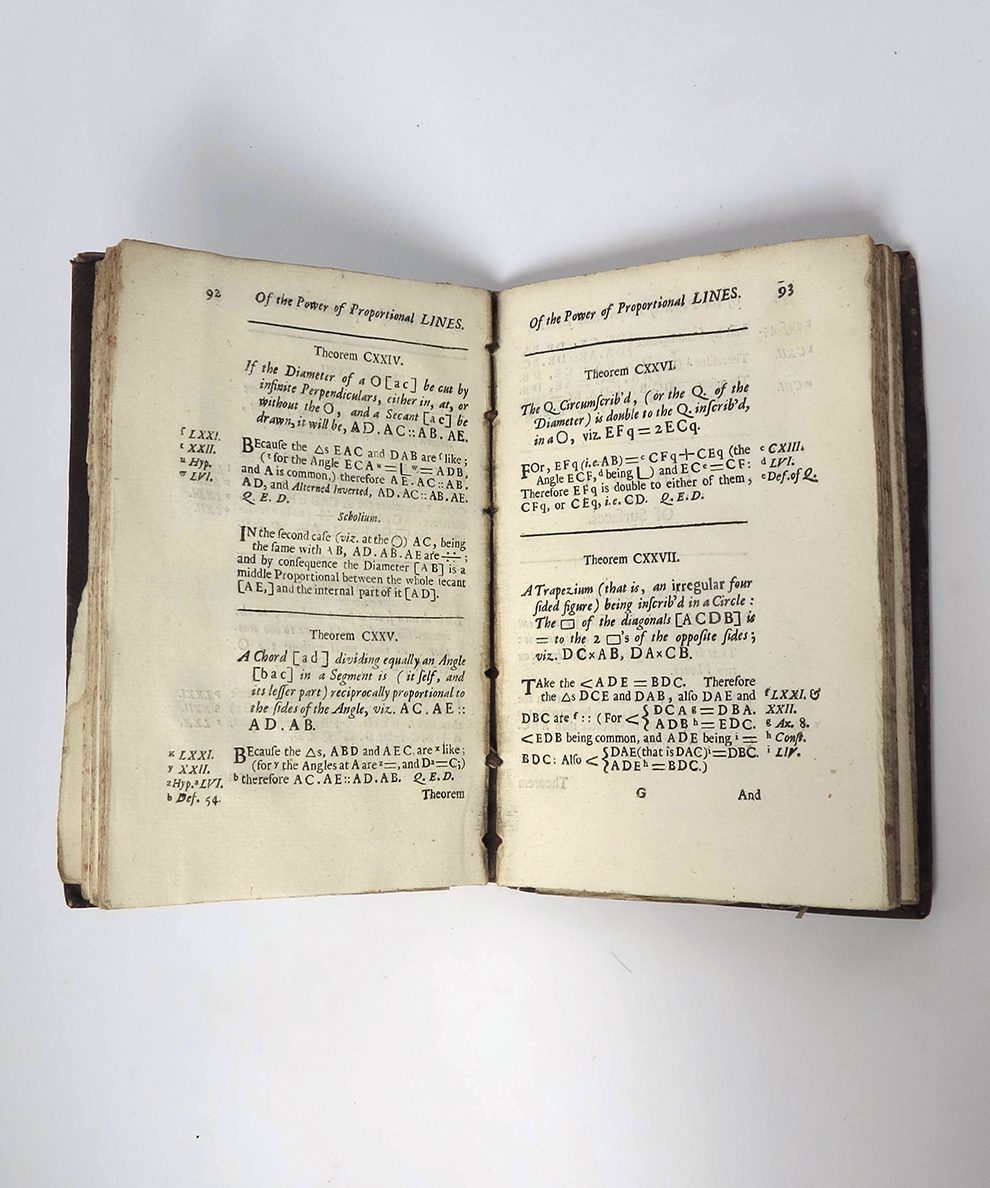 92
Of the Power of Proportional LINES.
Theorem CXXIV.
If the Diameter of a O [ac] be cut by
infinite Perpendiculars, either in, at, or
without the O, and a Secant [ae] be
drawn, it will be, AD. AC :: AB. AE.
BEcauſe the △s EAC and DAB are ſ like;
(ᵗ for the Angle ECA ᵘ = L ʷ = ADB,
and A is common,) therefore AE. AC :: AB.
AD, and Alterned Inverted, AD. AC :: AB. AE.
Q. E. D.
ſ LXXI.
ᵗ XXII.
ᵘ Hyp.
ʷ LVI.
Scholium.
IN the ſecond caſe (viz. at the O) AC, being
the ſame with AB, AD. AB. AE are ∺;
and by conſequence the Diameter [AB] is a
middle Proportional between the whole ſecant
[AE,] and the internal part of it [AD].
Theorem CXXV.
A Chord [ad] dividing equally an Angle
[bac] in a Segment is (it ſelf, and
its leſſer part) reciprocally proportional to
the ſides of the Angle, viz. AC. AE ::
AD. AB.
BEcauſe the △s, ABD and AEC. are ˣ like;
(for ʸ the Angles at A are ᶻ =, and D ᵃ = C;)
ᵇ therefore AC. AE :: AD. AB. Q. E. D.
ˣ LXXI.
ʸ XXII.
ᶻ Hyp. ᵃ LVI.
ᵇ Def. 54.
Theorem
93
Of the Power of Proportional LINES.
Theorem CXXVI.
The Q. Circumſcrib'd, (or the Q. of the
Diameter) is double to the Q. inſcrib'd,
in a O, viz. EFq = 2ECq.
FOr, EFq (i.e. AB) = ᶜ CFq + CEq (the
Angle ECF, ᵈ being L) and EC ᵉ = CF:
Therefore EFq is double to either of them,
CFq, or CEq, i.e. CD. Q. E. D.
ᶜ CXIII.
ᵈ LVI.
ᵉ Def. of Q.
Theorem CXXVII.
A Trapezium (that is, an irregular four
ſided figure) being inſcrib'd in a Circle:
The ▭ of the diagonals [ACDB] is
= to the 2 ▭'s of the oppoſite ſides;
viz. DC×AB, DA×CB.
TAke the < ADE = BDC. Therefore
the △s DCE and DAB, alſo DAE and
DBC are ᶠ :: (For < { DCA ᵍ = DBA.
ADB ʰ = EDC.
< EDB being common, and ADE being ⁱ =
BDC: Alſo < { DAE (that is DAC) ⁱ = DBC.
ADE ʰ = BDC.)
ᶠ LXXI. &
XXII.
ᵍ Ax. 8.
ʰ Conſt.
ⁱ LIV.
G
And